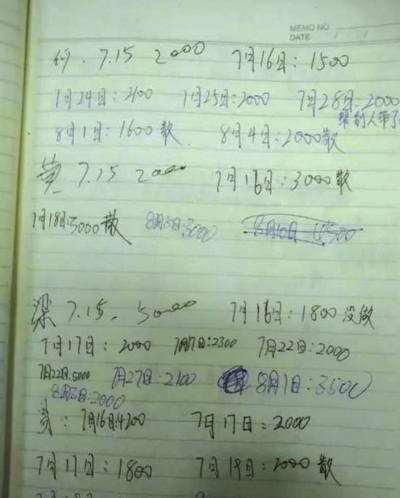 MEMO NO.
DATE / /
何. 7.15 2000 7月16日: 1500
1月24日: 2100 7月25日: 2000 7月28日: 2000
8月1日: 1600散 8月4日: 2000散
黄 7.15 2000 7月16日: 3000散
7月18日: 5000散 8月3日: 3000 8月6日
梁 7.15. 5000 7月16日: 1800没做
7月17日: 2000 7月17日: 2300 7月22日: 2000
7月22日: 5000 7月27日: 2100 8月1日: 3500
8月3日: 2000
7月16日: 4200 7月17日: 2000
7月17日: 1800 7月19日: 2000散